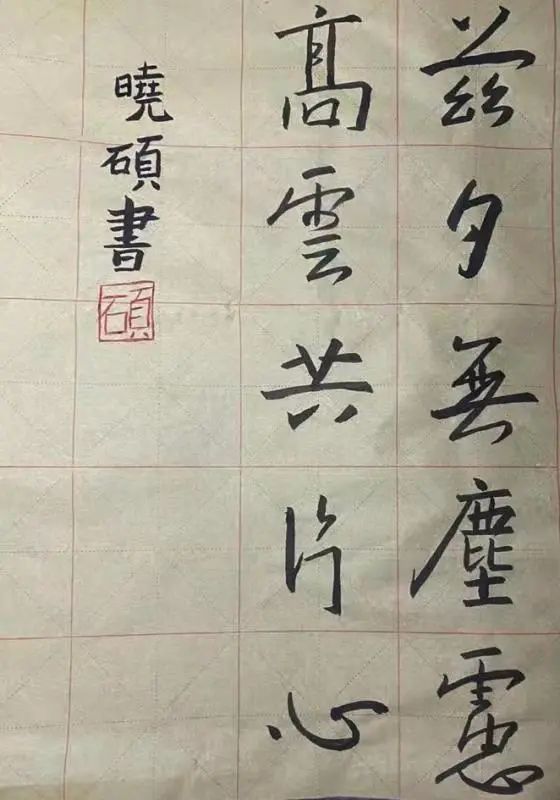 兹夕無塵慮
髙雲共片心
曉碩書
碩